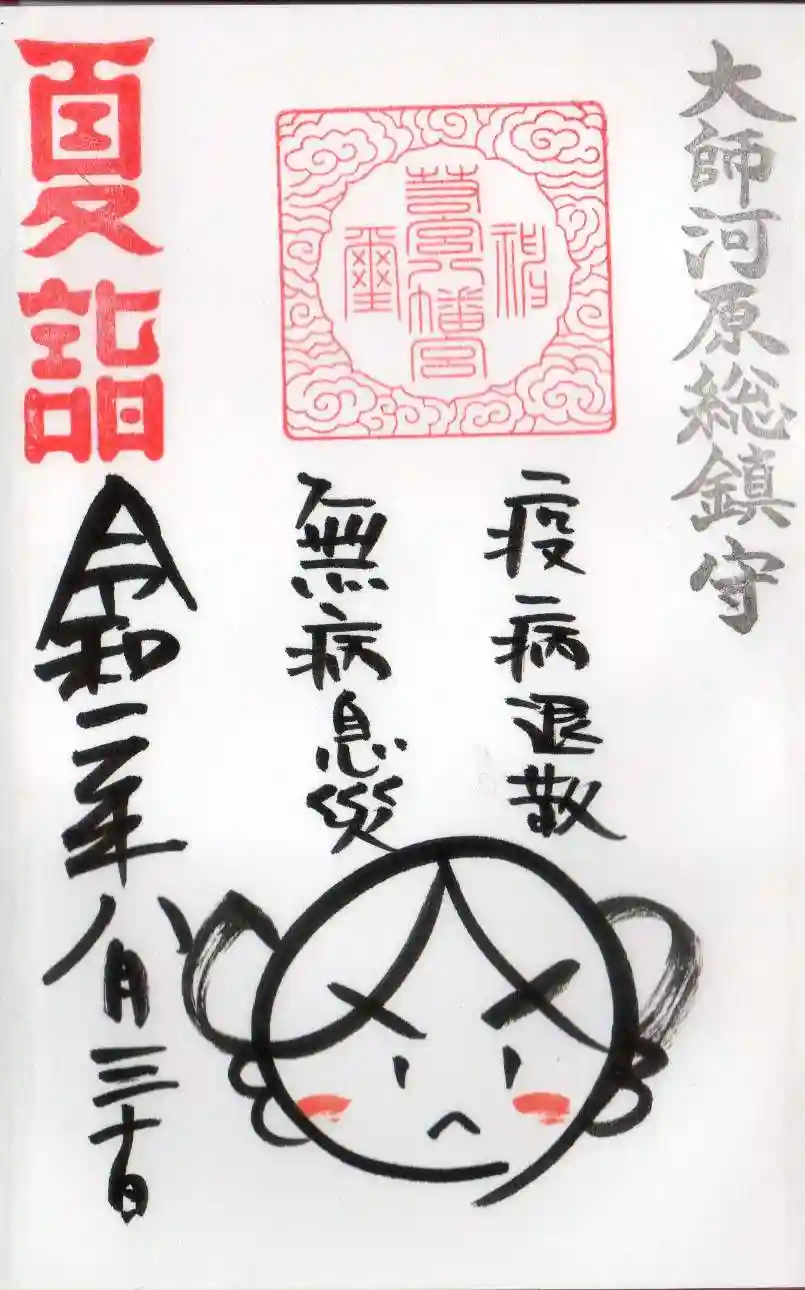 大師河原総鎮守
疫病退散
若宮八幡宮
無病息災
夏詣
令和二年八月三十日